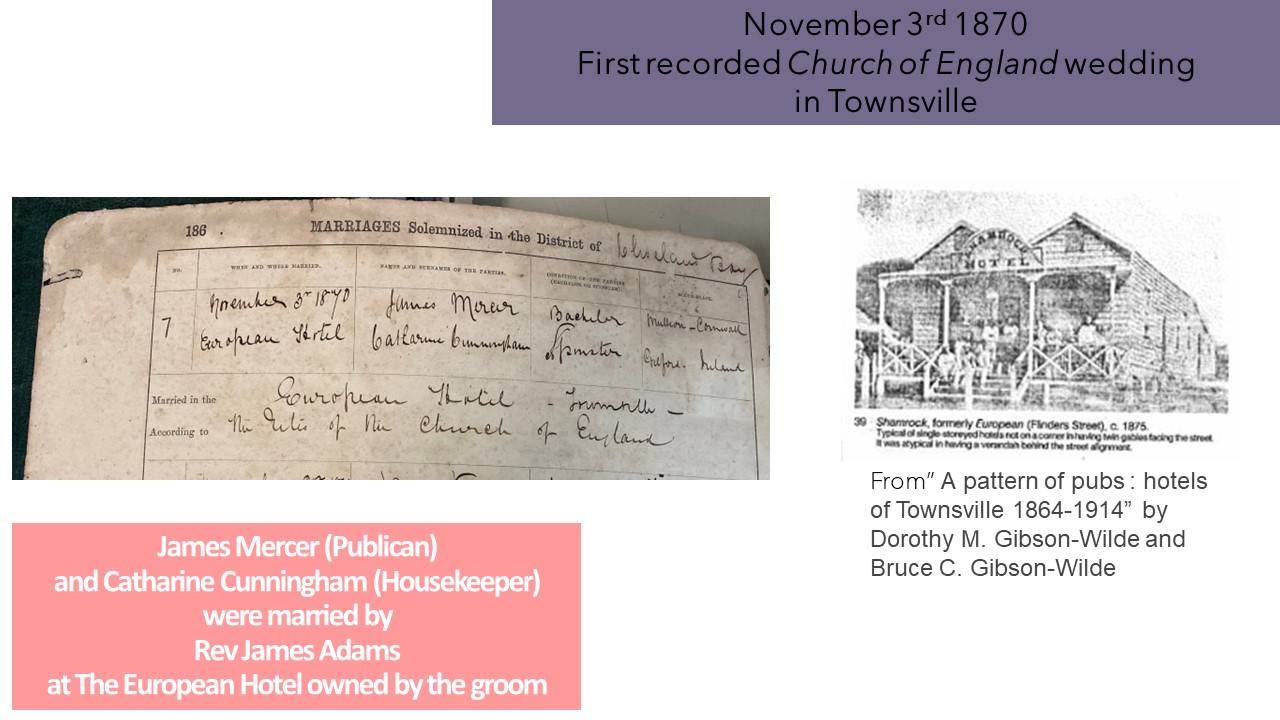 November 3rd 1870
First recorded Church of England wedding
in Townsville
186 . MARRIAGES Solemnized in the District of Cleveland Bay
NO. WHEN AND WHERE MARRIED. NAMES AND SURNAMES OF THE PARTIES. CONDITION OF THE PARTIES
(BACHELOR OR SPINSTER).
7 November 3rd 1870 James Mercer Bachelor Mullion - Cornwall
European Hotel Catharine Cunningham Spinster Ireland
Married in the European Hotel -
According to The Rites of The Church of England
SHAMROCK
HOTEL
39 Shamrock, formerly European (Flinders Street), c. 1875.
Typical of single-storeyed hotels not on a corner in having twin gables facing the street.
It was atypical in having a verandah behind the street alignment.
From” A pattern of pubs : hotels
of Townsville 1864-1914” by
Dorothy M. Gibson-Wilde and
Bruce C. Gibson-Wilde
James Mercer (Publican)
and Catharine Cunningham (Housekeeper)
were married by
Rev James Adams
at The European Hotel owned by the groom